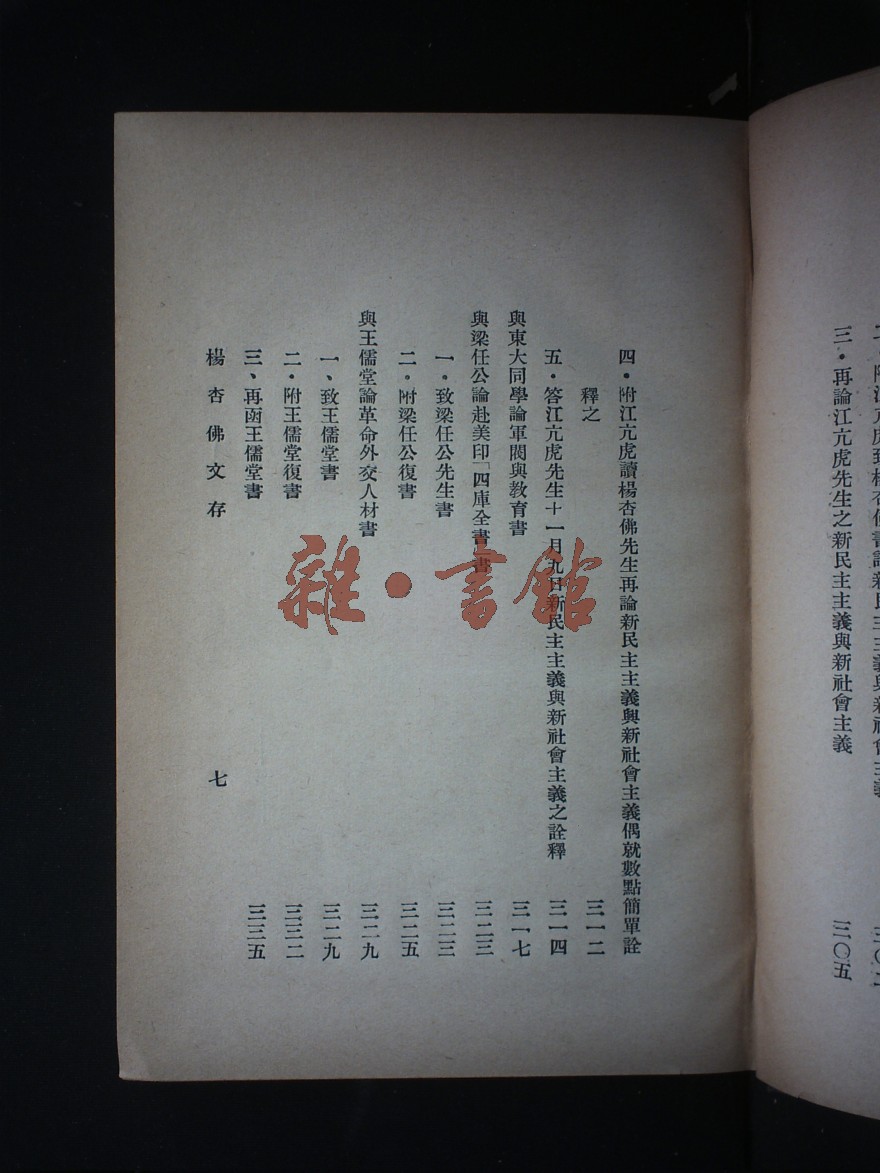 二・附江亢虎致楊杏佛書論新民主主義與新社會主義
三〇二
三・再論江亢虎先生之新民主主義與新社會主義
三〇五
四・附江亢虎讀楊杏佛先生再論新民主主義與新社會主義偶就數點簡單詮
釋之
三一二
五・答江亢虎先生十一月九日新民主主義與新社會主義之詮釋
三一四
與東大同學論軍閥與教育書
三一七
與梁任公論赴美印「四庫全書」書
三二三
一・致梁任公先生書
三二三
二・附梁任公復書
三二五
與王儒堂論革命外交人材書
三二九
一、致王儒堂書
三二九
二・附王儒堂復書
三三二
三、再函王儒堂書
三三五
楊杏佛文存
七
雜・書館